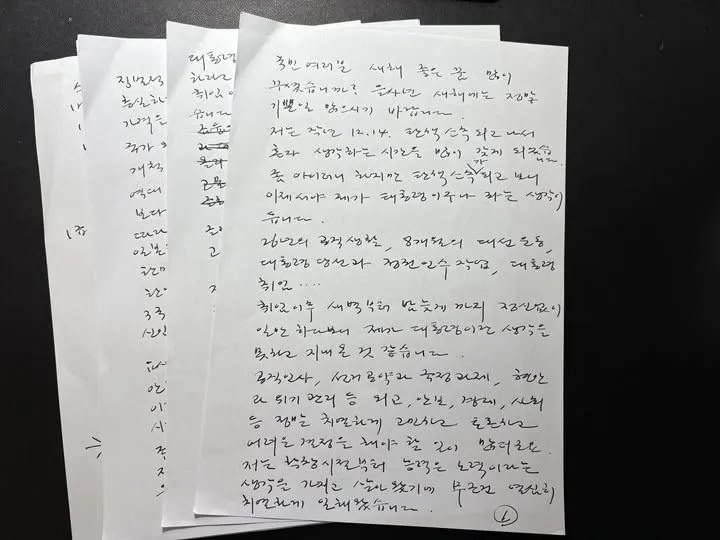 국민 여러분 새해 좋은 꿈 많이
꾸셨습니까? 을사년 새해에는 정말
기쁜일 많으시기 바랍니다.
저는 작년 12.14. 탄핵 소추 되고 나서
혼자 생각하는 시간을 많이 갖게 되었습니다.
좀 아이러니 하지만 탄핵소추가 되고 보니
이제서야 제가 대통령이구나 하는 생각이
듭니다.
26년의 공직생활, 8개월의 대선 운동,
대통령 당선과 정권 인수 작업, 대통령
취임 ....
취임이후 새벽부터 밤늦게 까지 정신없이
일만 하다보니 제가 대통령이란 생각을
못하고 지내온 것 같습니다.
공직인사, 선거공약과 국정과제, 현안
과 위기 관리 등 외교, 안보, 경제, 사회
등 정말 치열하게 고민하고 토론하고
어려운 결정을 해야 할 일이 많더군요.
저는 학창시절부터 능력은 노력이라는
생각을 가지고 살아 왔기에 무조건 열심히
치열하게 일해왔습니다.
①
대통령
하라고
취임
습니다
직무
충실하
가격은
국가
개척
역대
보다
따라
일본
한미
3국